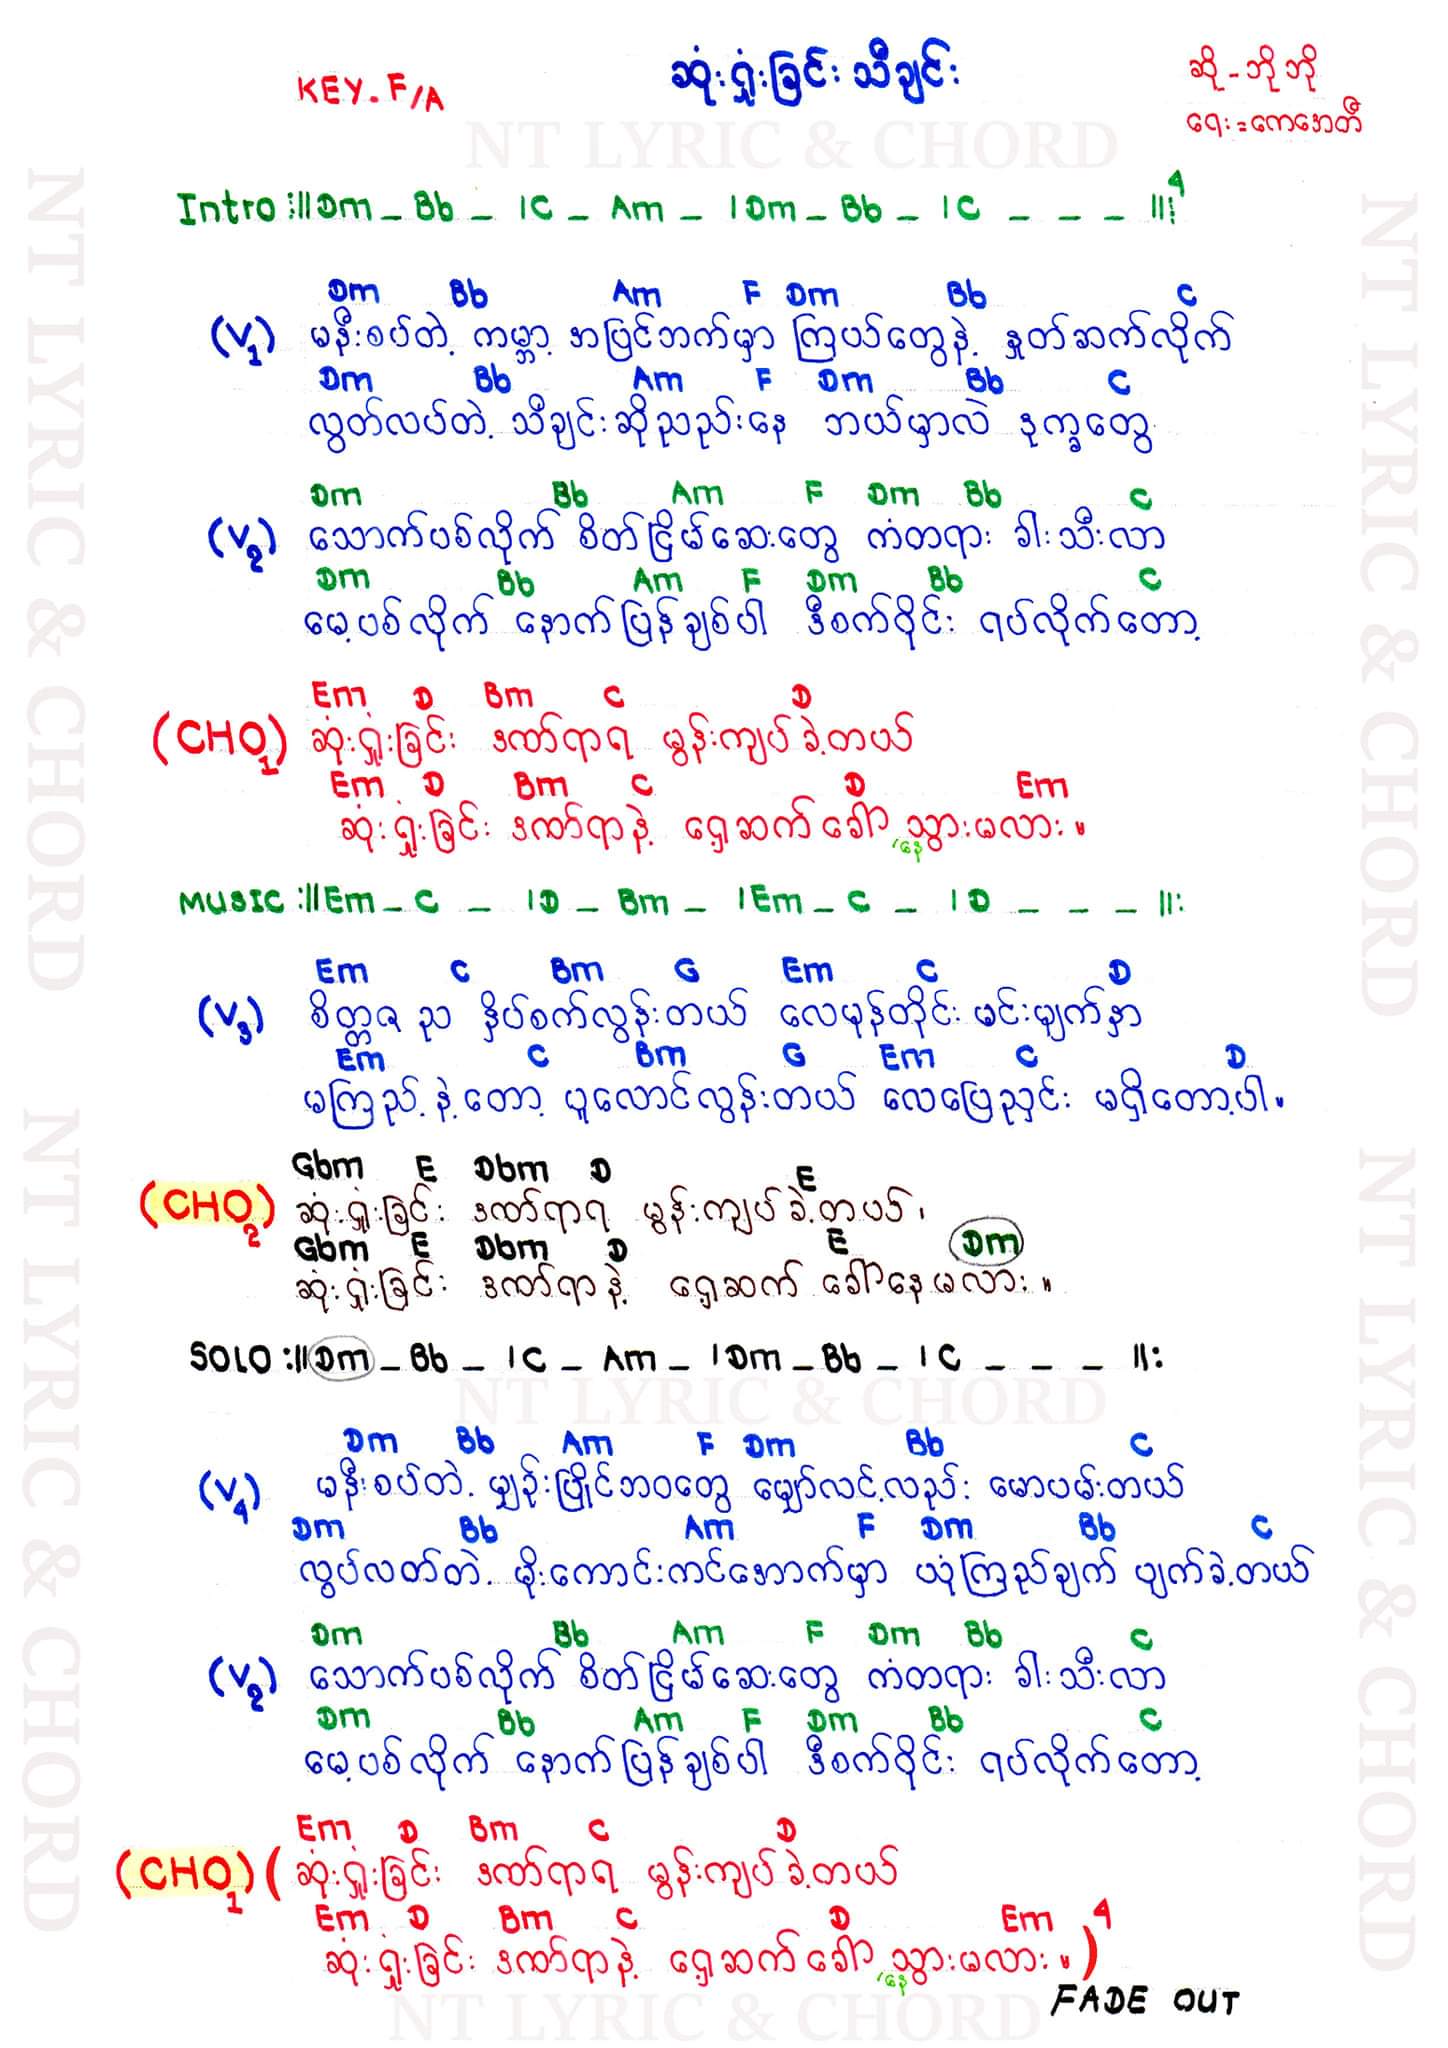 KEY. F/A
ဆုံးရှုံးခြင်း သီချင်း
ဆို - ဘိုဘို
ရေး = ကေအေတီ
NT LYRIC & CHORD
Intro :||Dm _ Bb _ |C _ Am _ |Dm _ Bb _ |C _ _ _ ||: 4
Dm Bb Am F Dm Bb C
(V1) မနီးစပ်တဲ့ ကမ္ဘာ့ အပြင်ဘက်မှာ ကြယ်တွေနဲ့ နှုတ်ဆက်လိုက်
Dm Bb Am F Dm Bb C
လွတ်လပ်တဲ့ သီချင်းဆိုညည်းနေ ဘယ်မှာလဲ ဒုက္ခတွေ
Dm Bb Am F Dm Bb C
(V2) သောက်ပစ်လိုက် စိတ်ငြိမ်ဆေးတွေ ကံတရား ခါးသီးလာ
Dm Bb Am F Dm Bb C
မေ့ပစ်လိုက် နောက်ပြန်ချစ်ပါ ဒီစက်ဝိုင်း ရပ်လိုက်တော့
Em D Bm C D
(CHO1) ဆုံးရှုံးခြင်း ဒဏ်ရာရ မွန်းကျပ်ခဲ့တယ်
Em D Bm C D Em
ဆုံးရှုံးခြင်း ဒဏ်ရာနဲ့ ရှေ့ဆက်ခေါ်သွားမလား။
/နေ
MUSIC :||Em _ C _ |D _ Bm _ |Em _ C _ |D _ _ _ ||:
Em C Bm G Em C D
(V3) စိတ္တဇ ည နှိပ်စက်လွန်းတယ် လေမုန်တိုင်း မင်းမျက်နှာ
Em C Bm G Em C D
မကြည့်နဲ့တော့ ပူလောင်လွန်းတယ် လေပြေညှင်း မရှိတော့ပါ။
Gbm E Dbm D E
(CHO2) ဆုံးရှုံးခြင်း ဒဏ်ရာရ မွန်းကျပ်ခဲ့တယ်၊
Gbm E Dbm D E Dm
ဆုံးရှုံးခြင်း ဒဏ်ရာနဲ့ ရှေ့ဆက် ခေါ်နေမလား။
SOLO :||Dm _ Bb _ |C _ Am _ |Dm _ Bb _ |C _ _ _ ||:
NT LYRIC & CHORD
Dm Bb Am F Dm Bb C
(V4) မနီးစပ်တဲ့ မျှဉ်းပြိုင်ဘဝတွေ မျှော်လင့်လည်း မောပမ်းတယ်
Dm Bb Am F Dm Bb C
လွပ်လတ်တဲ့ မိုးကောင်းကင်အောက်မှာ ယုံကြည်ချက် ပျက်ခဲ့တယ်
Dm Bb Am F Dm Bb C
(V2) သောက်ပစ်လိုက် စိတ်ငြိမ်ဆေးတွေ ကံတရား ခါးသီးလာ
Dm Bb Am F Dm Bb C
မေ့ပစ်လိုက် နောက်ပြန်ချစ်ပါ ဒီစက်ဝိုင်း ရပ်လိုက်တော့
Em D Bm C D
(CHO1) (ဆုံးရှုံးခြင်း ဒဏ်ရာရ မွန်းကျပ်ခဲ့တယ်
Em D Bm C D Em
ဆုံးရှုံးခြင်း ဒဏ်ရာနဲ့ ရှေ့ဆက်ခေါ်သွားမလား။) 4
/နေ
FADE OUT
NT LYRIC & CHORD
NT LYRIC & CHORD
NT LYRIC & CHORD
NT LYRIC & CHORD
NT LYRIC & CHORD